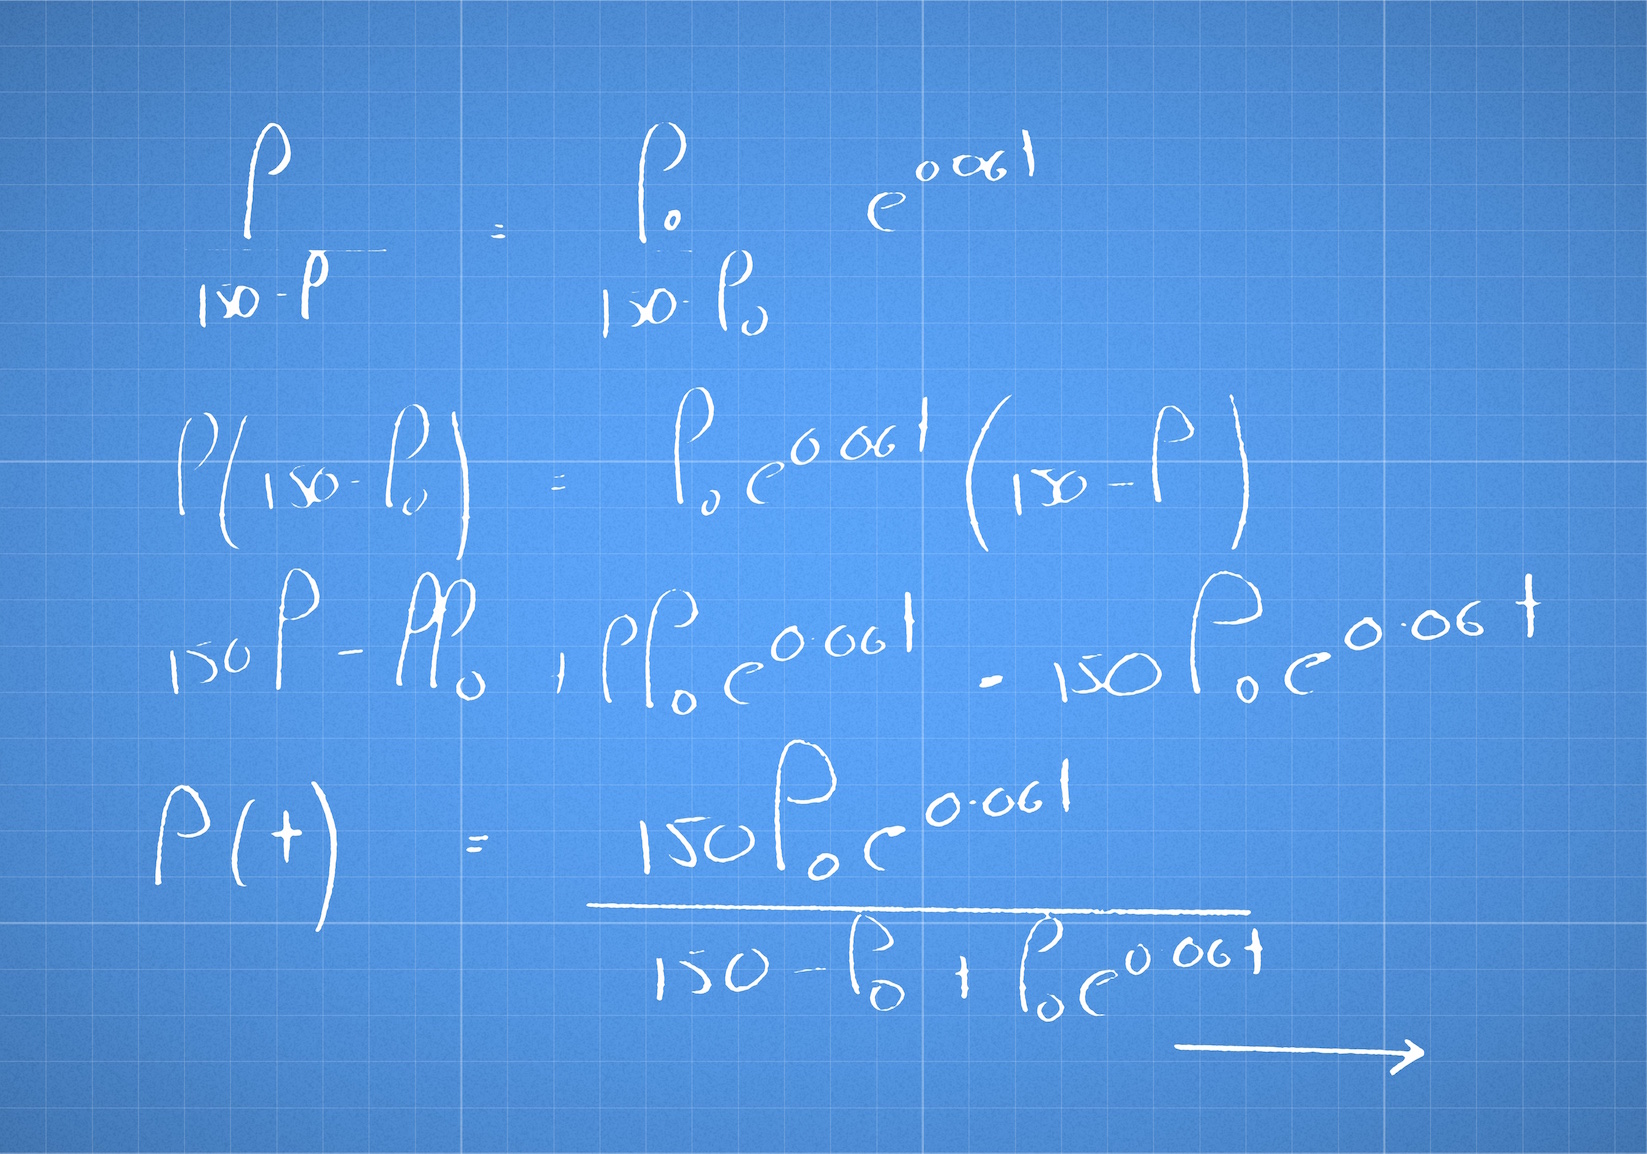 P/(150-P) = P₀/(150-P₀) e^(0.06t)
P(150-P₀) = P₀e^(0.06t) (150-P)
150P - PP₀ + PP₀e^(0.06t) - 150P₀e^(0.06t)
P(t) = 150P₀e^(0.06t)/(150-P₀+P₀e^(0.06t))